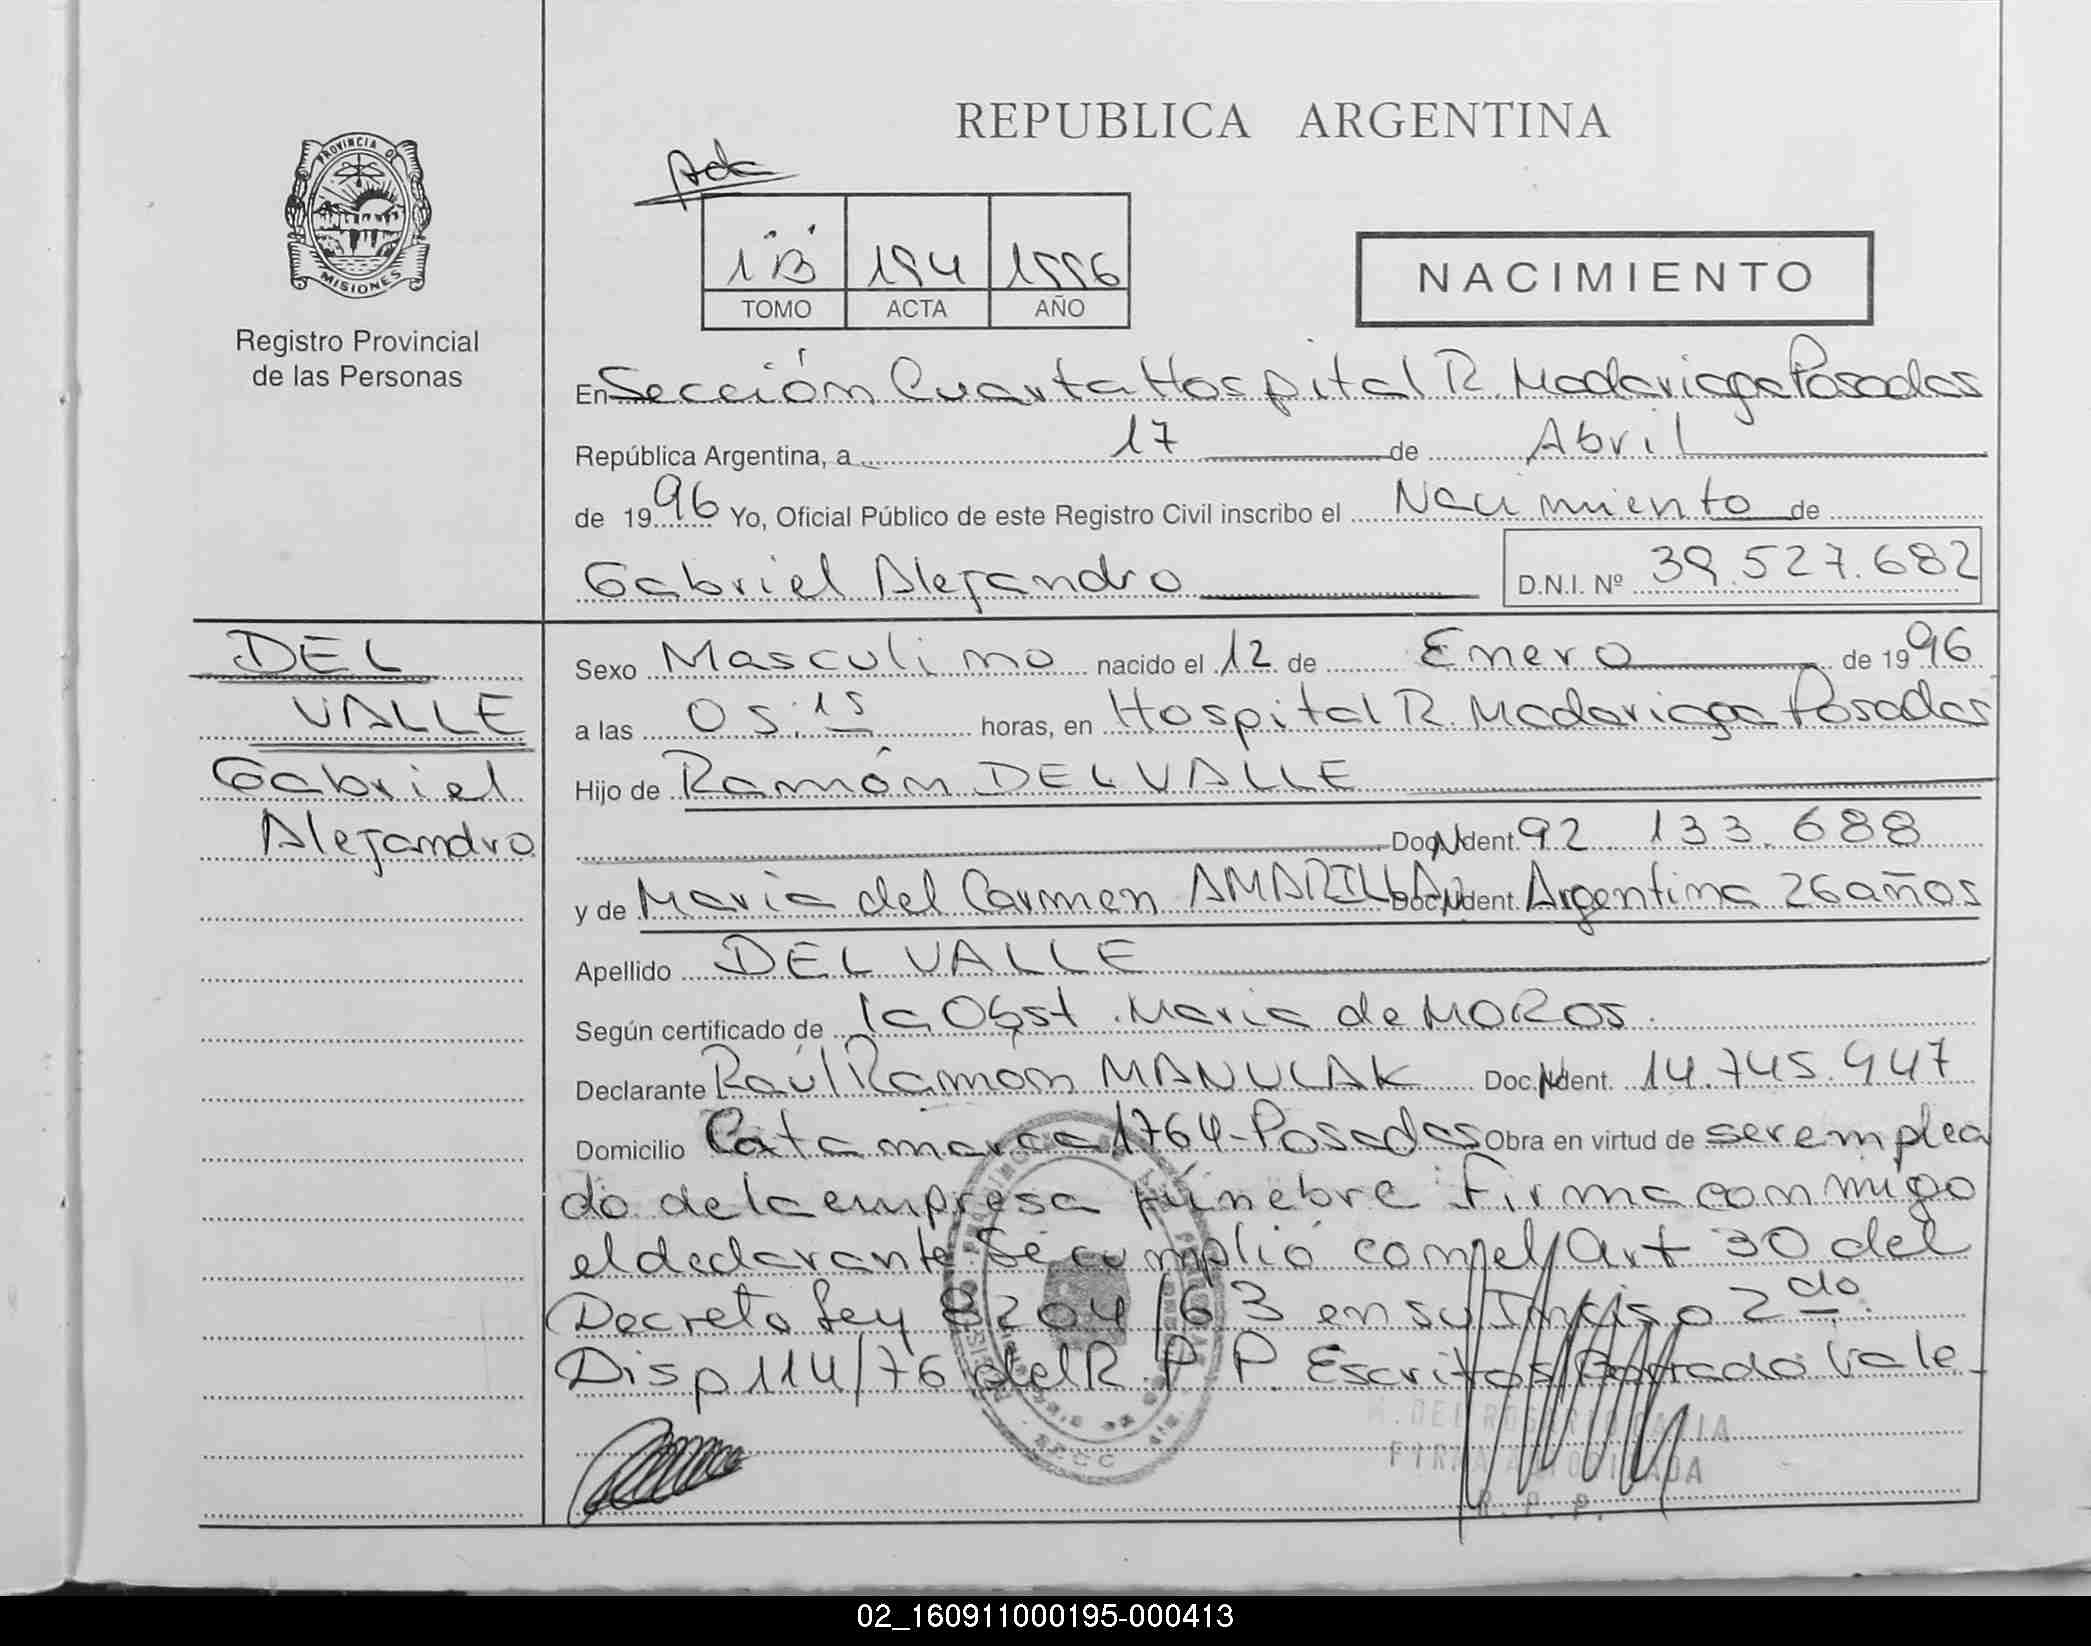 REPUBLICA ARGENTINA
PROVINCIA DE
MISIONES
Registro Provincial
de las Personas
Acta
1 "B" 194 1996
TOMO ACTA AÑO
NACIMIENTO
En Sección Cuarta Hospital R. Madariaga Posadas
República Argentina, a 17 de Abril
de 1996 Yo, Oficial Público de este Registro Civil inscribo el Nacimiento de
Gabriel Alejandro D.N.I. Nº 39.527.682
DEL
VALLE
Gabriel
Alejandro
Sexo Masculino nacido el 12 de Enero de 1996
a las 05:15 horas, en Hospital R. Madariaga Posadas
Hijo de Ramón DEL VALLE
Doc. Ident. 92.133.688
y de Maria del Carmen AMARILLA Doc. Ident. Argentina 26 años
Apellido DEL VALLE
Según certificado de la Obst. Maria de MOROS.
Declarante Raúl Ramón MANULAK Doc. Ident. 14.745.947
Domicilio Catamarca 1764-Posadas Obra en virtud de ser emplea
do de la empresa fúnebre Firma conmigo
el declarante. Se cumplió con el Art 30 del
Decreto Ley 8204/63 en su Inciso 2do.
Disp 114/76 del R. P. P. Escritos Borrado Vale.
FIRMA AUTORIZADA
R. P. P.
02_160911000195-000413